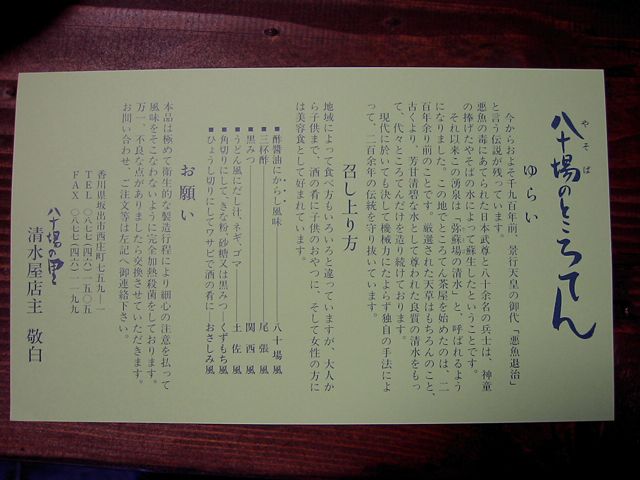 やそば
八十場のところてん
ゆらい
今からおよそ千九百年前、景行天皇の御代「悪魚退治」
と言う伝説が残っています。
悪魚の毒にあてられた日本武尊と八十余名の兵士は、神童
の捧げたやそばの水によって蘇生したということです。
それ以来この湧泉は「弥蘇場の清水」と、呼ばれるよう
になりました。この地でところてん茶屋を始めたのは、二
百年余り前のことです。厳選された天草はもちろんのこと、
古くより、芳甘清碧な水として尊われた良質の清水をもっ
て、代々ところてんだけを造り続けております。
現代に於いても決して機械力にたよらず独自の手法によ
って、二百余年の伝統を守り抜いています。
召し上り方
地域によって食べ方もいろいろと違っていますが、大人か
ら子供まで、酒の肴に子供のおやつに、そして女性の方に
は美容食として好まれています。
■酢醤油にからし風味 八十場風
■三杯酢 尾張風
■黒みつ 関西風
■うどん風にだし汁、ネギ、ゴマ 土佐風
■角切りにしてきな粉、砂糖又は黒みつ くずもち風
■ひょうし切りにしてワサビで酒の肴に おさしみ風
お願い
本品は極めて衛生的な製造行程により細心の注意を払って
風味をそこなわないように完全加熱殺菌をしております。
万一、不良な点がありましたら交換させていただきます。
お問い合わせ、ご注文等は左記へ御連絡下さい。
香川県坂出市西庄町七五九―一
TEL 〇八七七(四六)一五〇五
FAX 〇八七七(四六)一一九九
八十場の里
清水屋店主 敬白